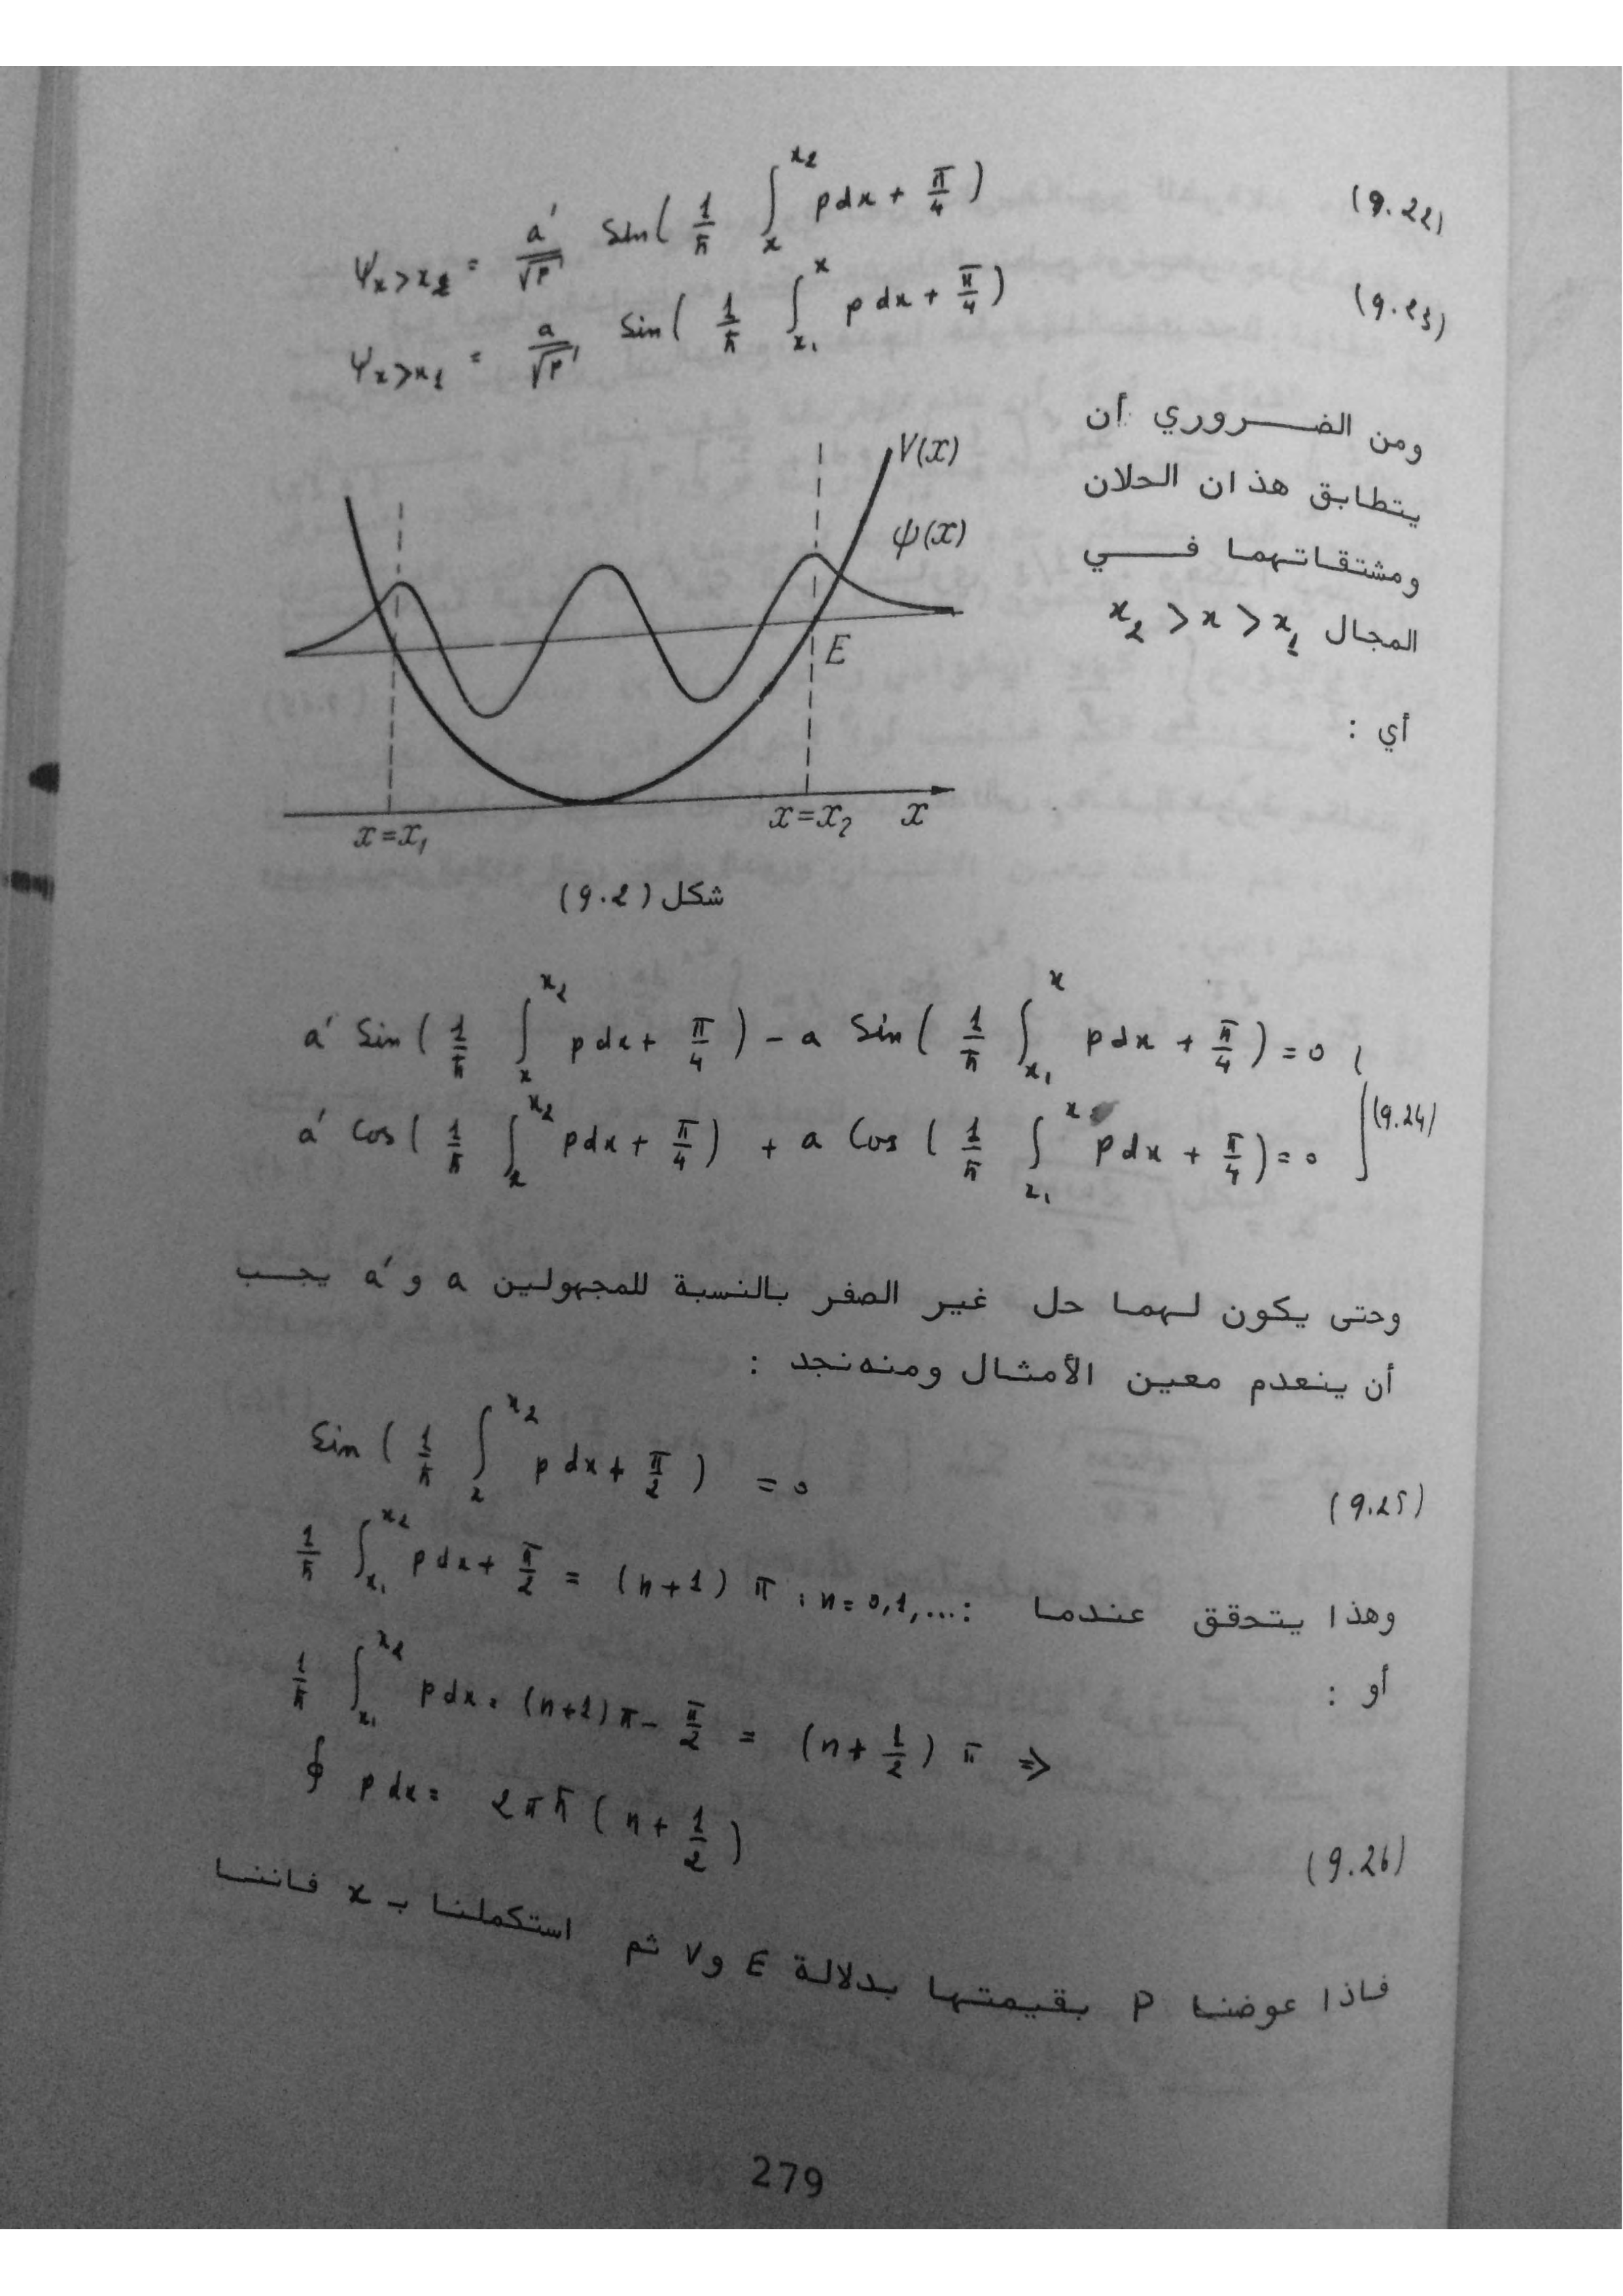 ψx>x2 = a′/√p sin( 1/ħ ∫_x^x2 pdx + π/4 ) (9.22)
ψx>x1 = a/√p sin( 1/ħ ∫_x1^x pdx + π/4 ) (9.23)
ومن الضروري أن
يتطابق هذان الحلان
ومشتقاتهما في
المجال x2 > x > x1
أي :
V(x)
ψ(x)
E
x=x1 x=x2 x
شكل (9.2)
a′ Sin ( 1/ħ ∫_x^x2 pdx + π/4 ) - a Sin ( 1/ħ ∫_x1^x pdx + π/4 ) = 0
a′ Cos ( 1/ħ ∫_x^x2 pdx + π/4 ) + a Cos ( 1/ħ ∫_x1^x pdx + π/4 ) = 0 (9.24)
وحتى يكون لهما حل غير الصفر بالنسبة للمجهولين a و a′ يجب
أن ينعدم معين الأمثال ومنه نجد :
Sin ( 1/ħ ∫_x^x2 pdx + π/2 ) = 0 (9.25)
وهذا يتحقق عندما : 1/ħ ∫_x1^x2 pdx + π/2 = (n+1) π ; n=0,1,...
أو : 1/ħ ∫_x1^x2 pdx = (n+1)π - π/2 = (n + 1/2) π ⇒
∮ pdx = 2πħ ( n + 1/2 ) (9.26)
فاذا عوضنا P بقيمتها بدلالة E و V ثم استكملنا بـ x فاننا
279